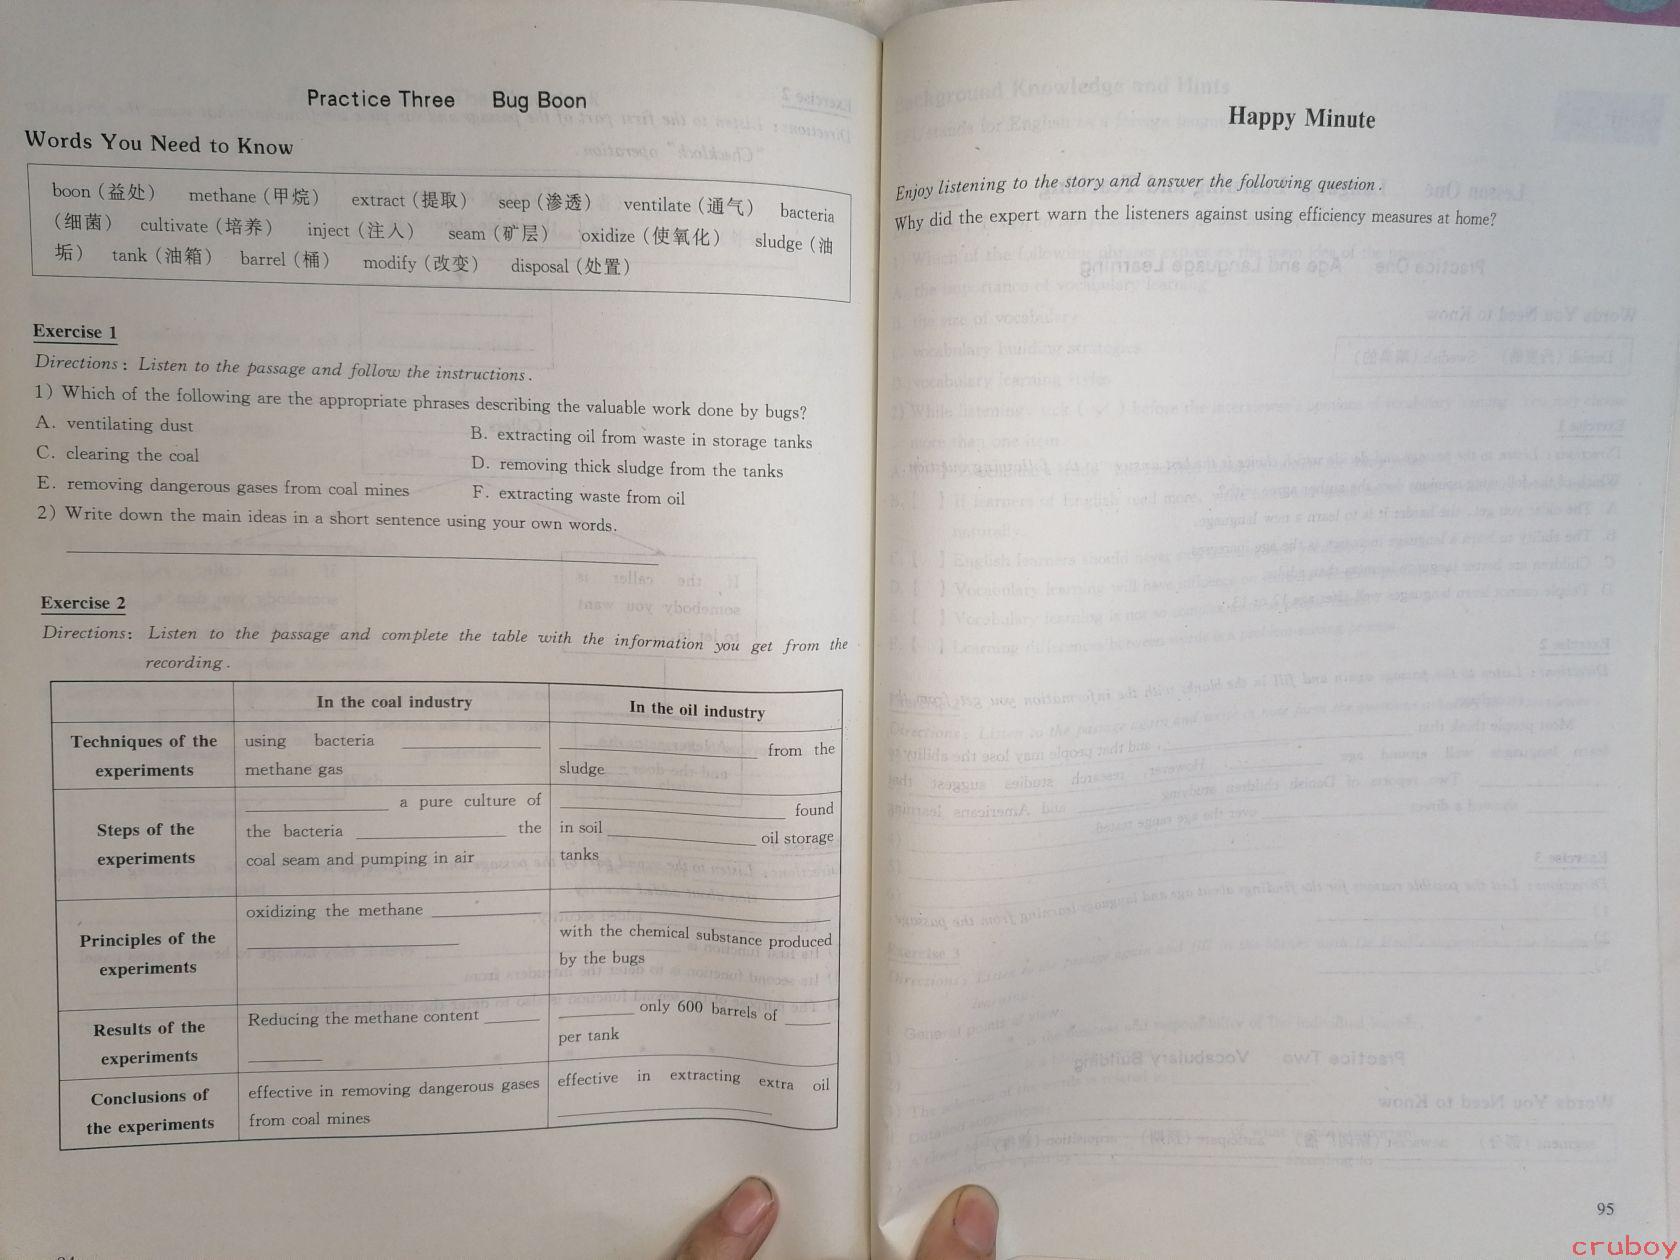 Practice Three Bug Boon
Words You Need to Know
boon (益处) methane (甲烷) extract (提取) seep (渗透) ventilate (通气) bacteria
(细菌) cultivate (培养) inject (注入) seam (矿层) oxidize (使氧化) sludge (油
垢) tank (油箱) barrel (桶) modify (改变) disposal (处置)
Exercise 1
Directions: Listen to the passage and follow the instructions.
1) Which of the following are the appropriate phrases describing the valuable work done by bugs?
A. ventilating dust B. extracting oil from waste in storage tanks
C. clearing the coal D. removing thick sludge from the tanks
E. removing dangerous gases from coal mines F. extracting waste from oil
2) Write down the main ideas in a short sentence using your own words.
Exercise 2
Directions: Listen to the passage and complete the table with the information you get from the
recording.
In the coal industry In the oil industry
Techniques of the
experiments
using bacteria ________
methane gas
________ from the
sludge
Steps of the
experiments
________ a pure culture of
the bacteria ________ the
coal seam and pumping in air
________ found
in soil ________ oil storage
tanks
Principles of the
experiments
oxidizing the methane ________
________
________
with the chemical substance produced
by the bugs
Results of the
experiments
Reducing the methane content ________
________
________ only 600 barrels of ________
per tank
Conclusions of
the experiments
effective in removing dangerous gases
from coal mines
effective in extracting extra oil
________
Happy Minute
Enjoy listening to the story and answer the following question.
Why did the expert warn the listeners against using efficiency measures at home?
95
cruboy